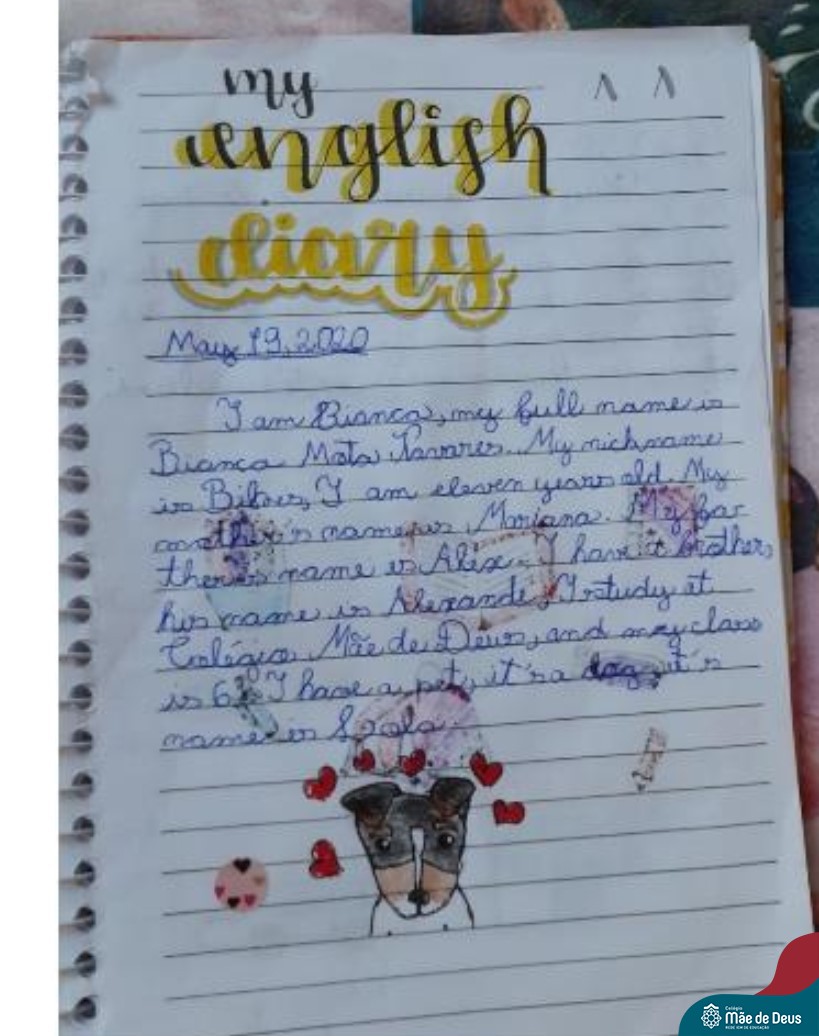 my
english
diary
May 19, 2020
I am Bianca, my full name is
Bianca Mota Tavares. My nickname
is I am eleven years old. My
mother's name is Mariana. My fa-
ther's name is Alex. I have a brother,
his name is Alexande, I study at
Colégio Mãe de Deus, and my class
is 6º I have a pet, it's a dog it's
name is
Colégio
Mãe de Deus
REDE ICM DE EDUCAÇÃO